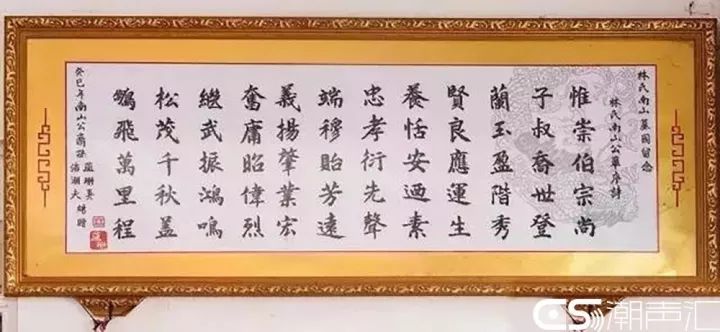 林氏南山墓園留念
林氏南山公輩序詩
惟崇伯宗尚
子叔喬世登
蘭玉盈階秀
賢良應運生
養恬安迺素
忠孝衍先聲
端穆貽芳遠
義揚肇業宏
奮庸昭偉烈
繼武振鴻鳴
松茂千秋蓋
鵬飛萬里程
癸巳年南山公裔孫
潮声汇